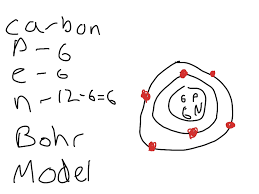 carbon
P - 6
e - 6
n - 12-6=6
Bohr
Model
6 P
6 N